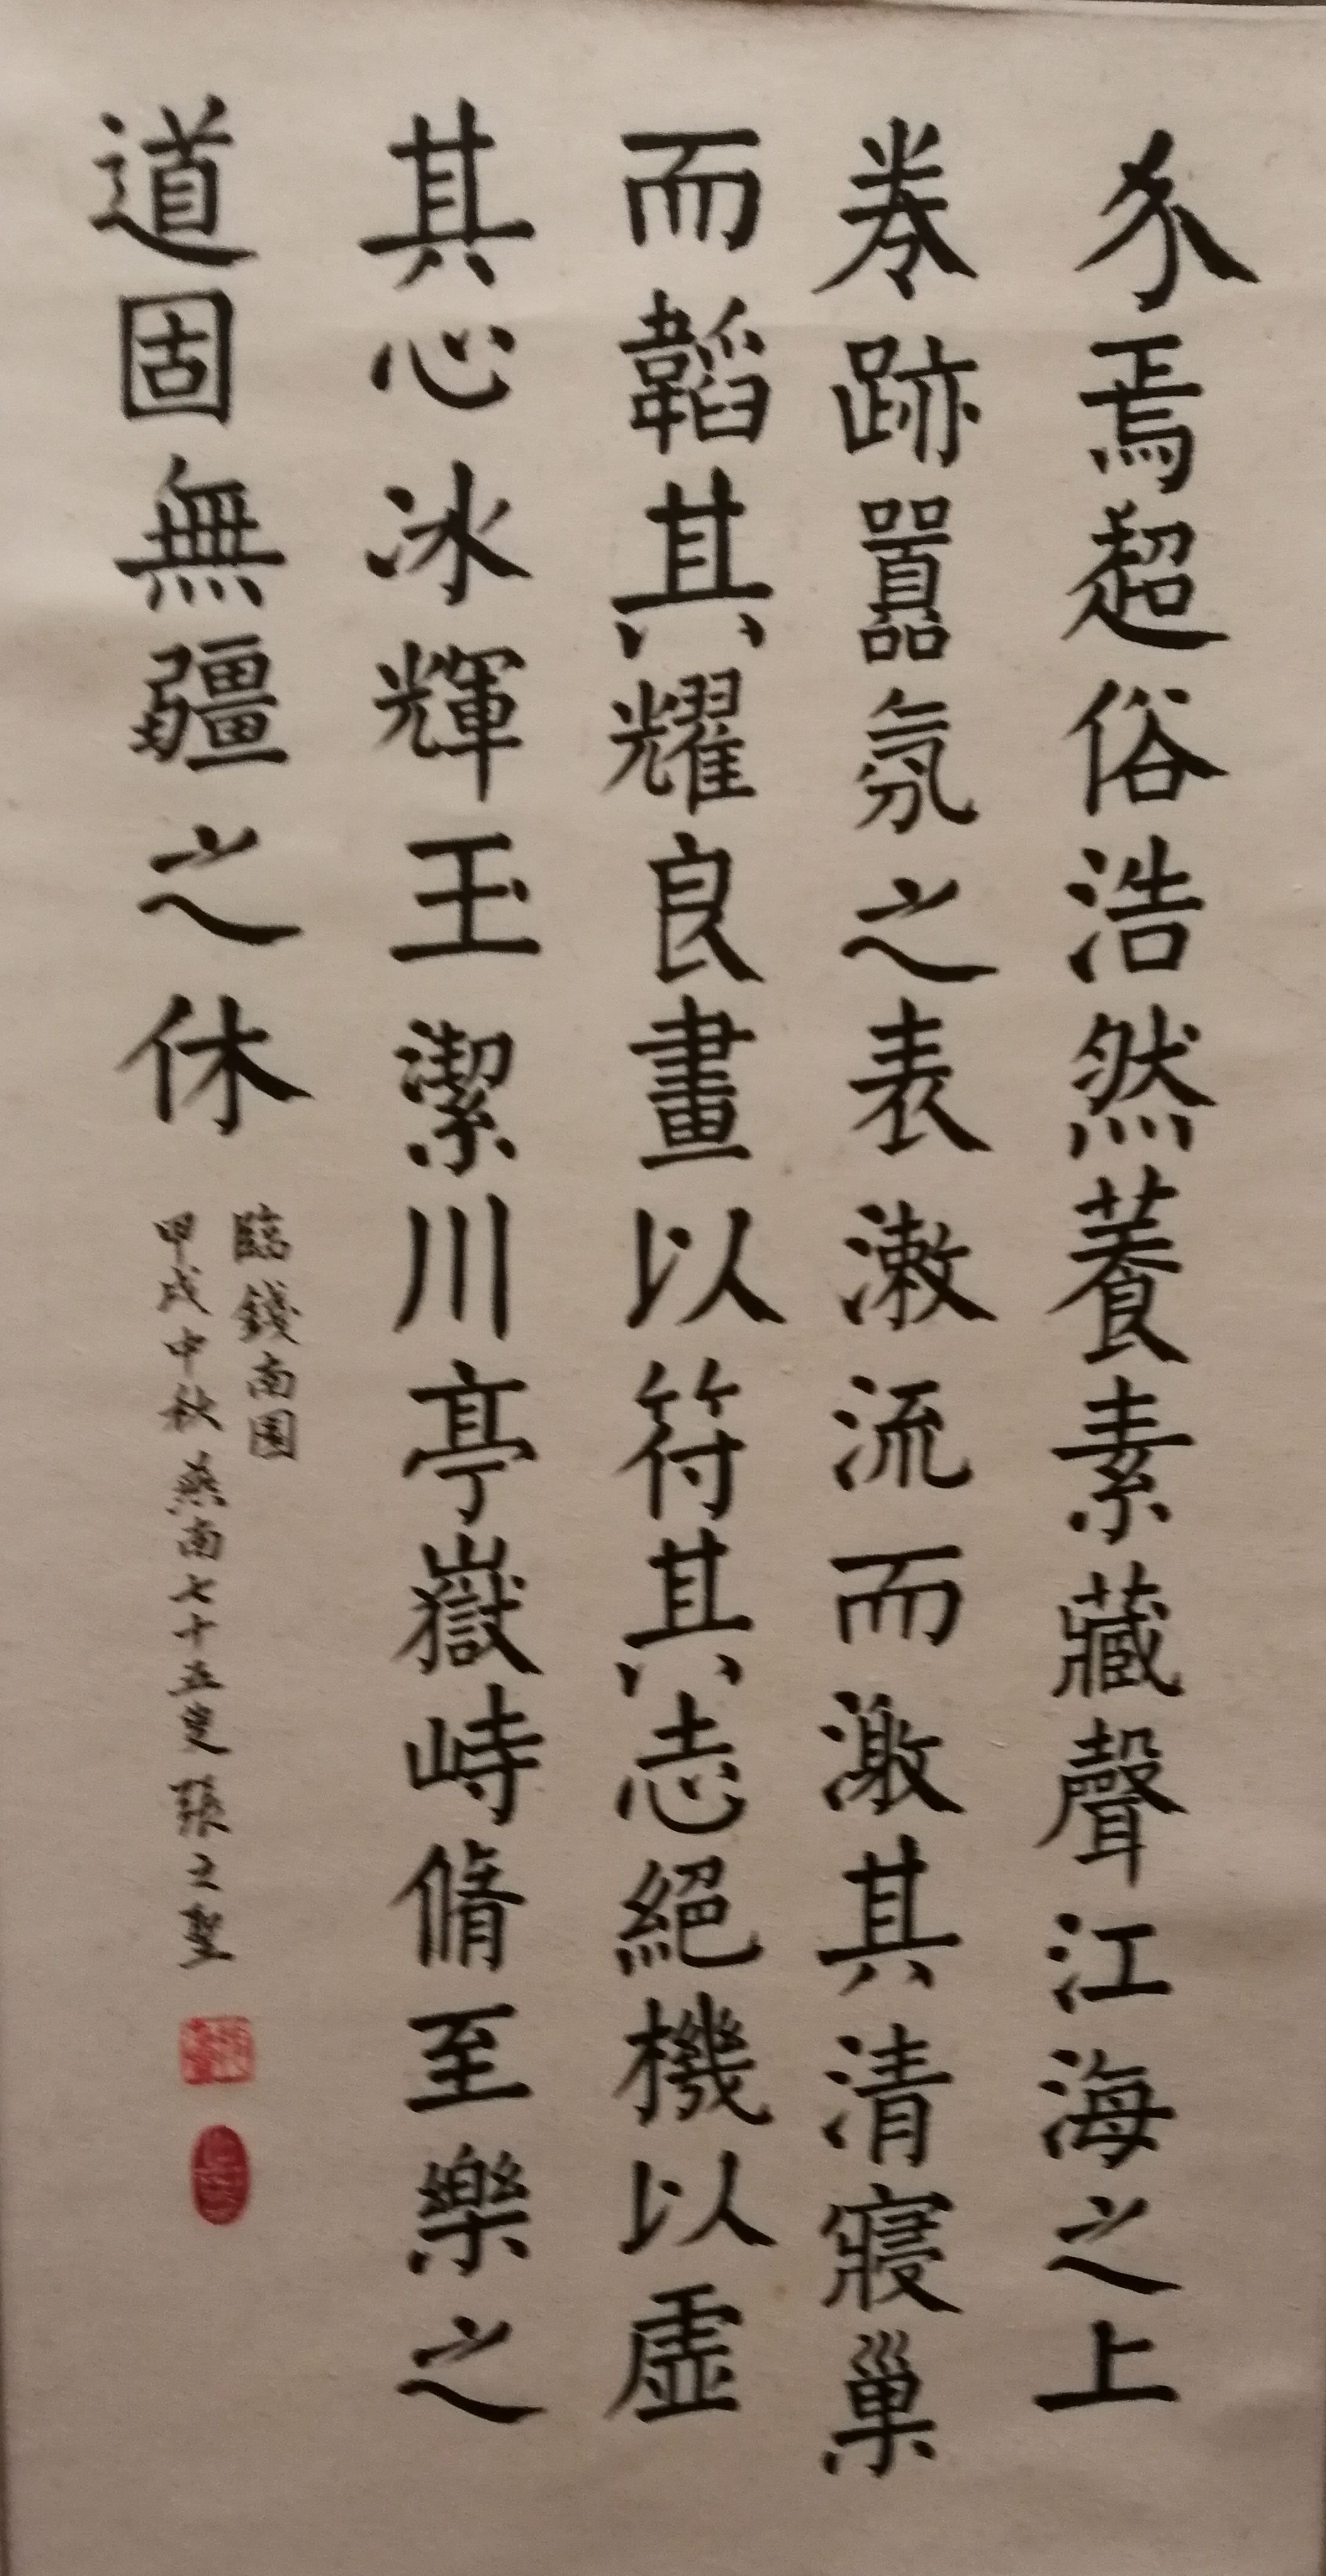 尒焉超俗浩然養素藏聲江海之上
卷跡囂氛之表漱流而激其清寢巢
而韜其耀良畫以符其志絕機以虛
其心冰輝玉潔川亭嶽峙脩至樂之
道固無疆之休
臨錢南園
甲戌中秋燕南七十五叟張之聖